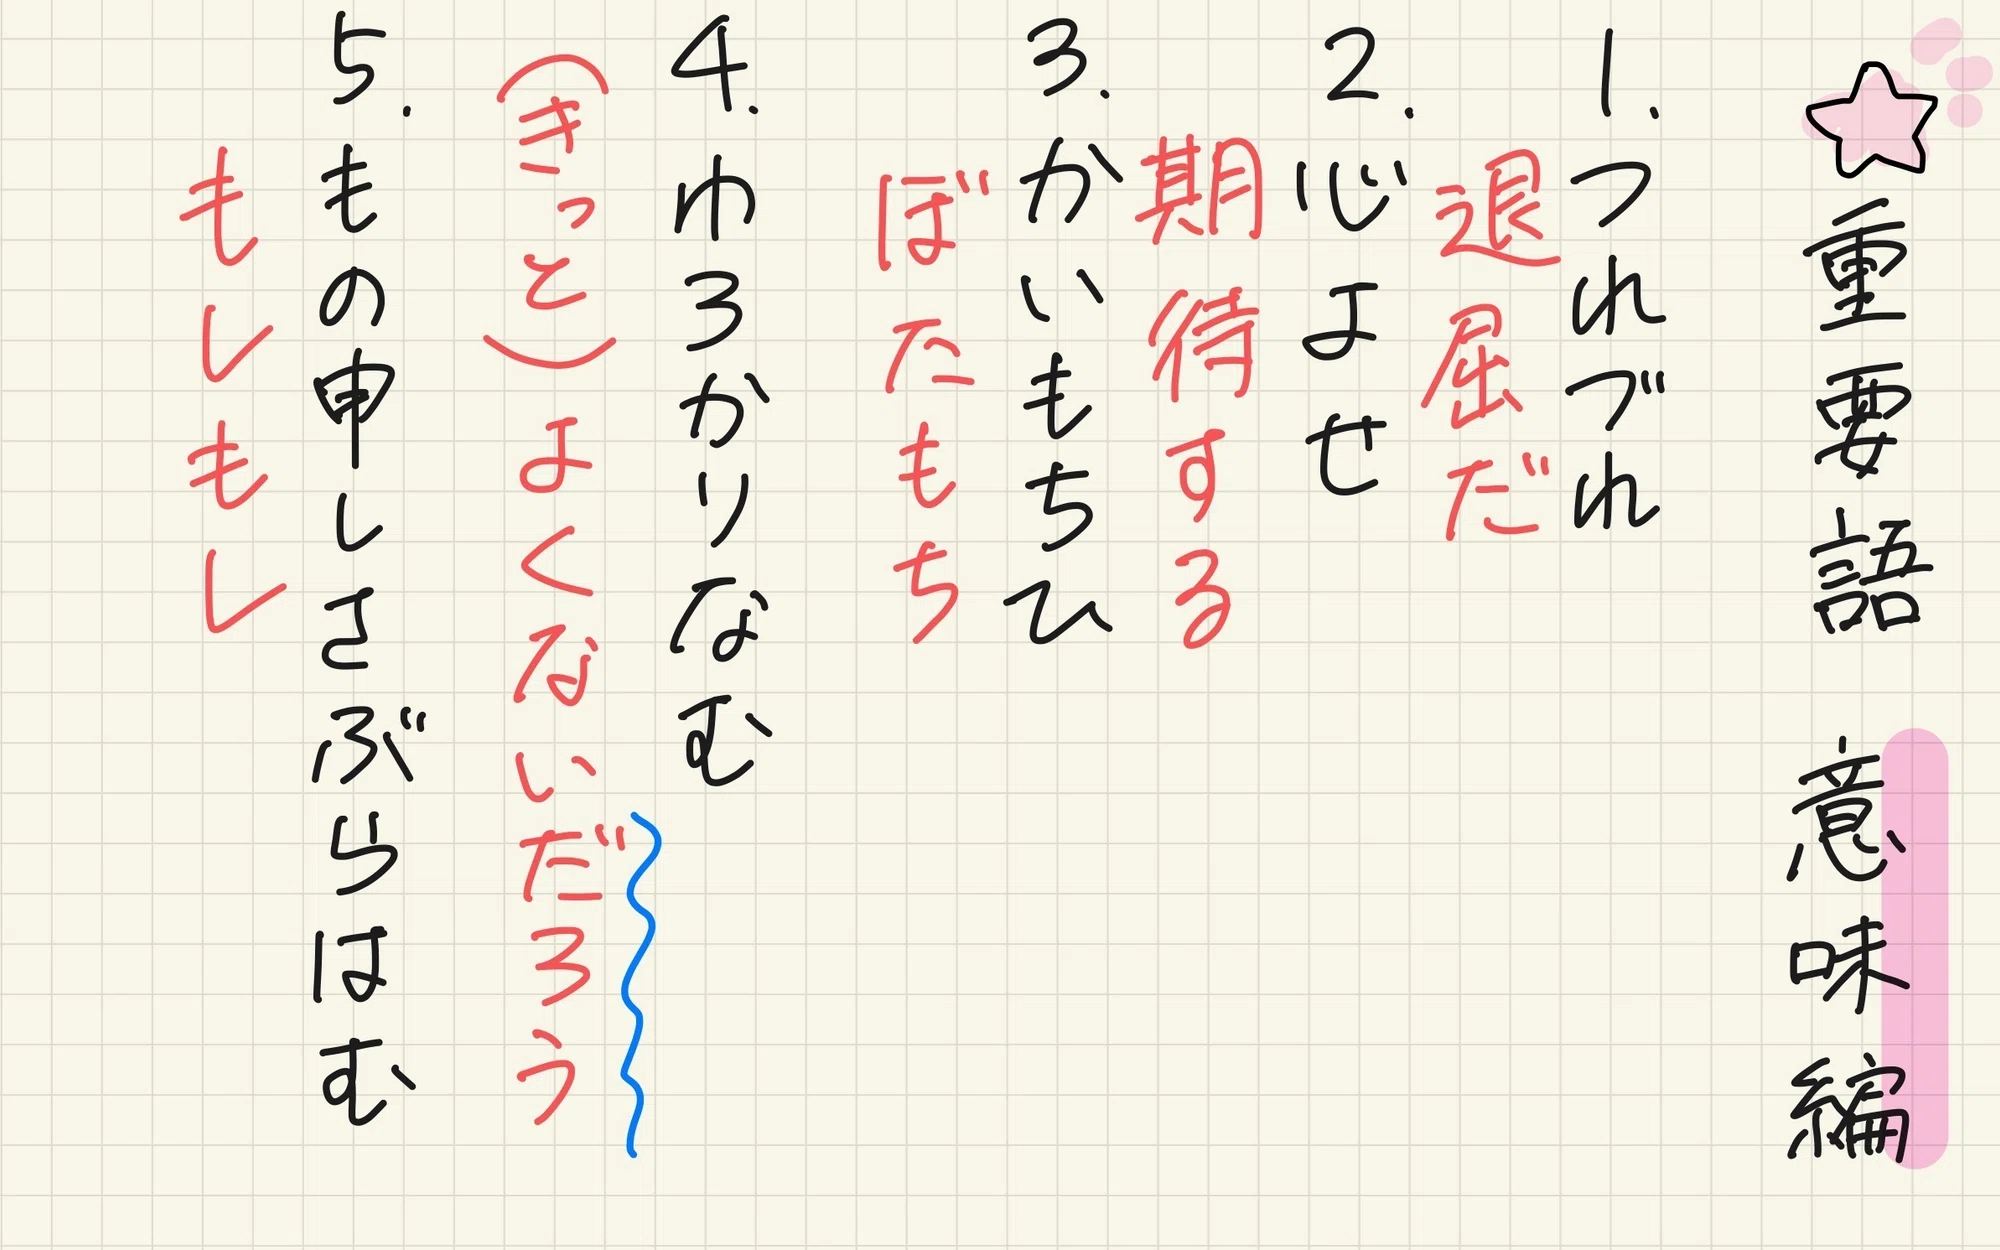 重要語 意味編
1. つれづれ
退屈だ
2. 心よせ
期待する
3. かいもちひ
ぼたもち
4. ゆるかりなむ
(きっと)よくないだろう
5. もの申しさぶらはむ
もしもし